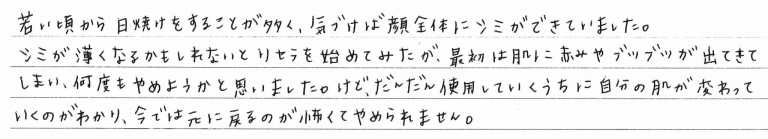 若い頃から日焼けをすることが多く、気づけば顔全体にシミができていました。
シミが薄くなるかもしれないとリセラを始めてみたが、最初は肌に赤みやブツブツが出てきて
しまい、何度もやめようかと思いました。けど、だんだん使用していくうちに自分の肌が変わって
いくのがわかり、今では元に戻るのが怖くてやめられません。